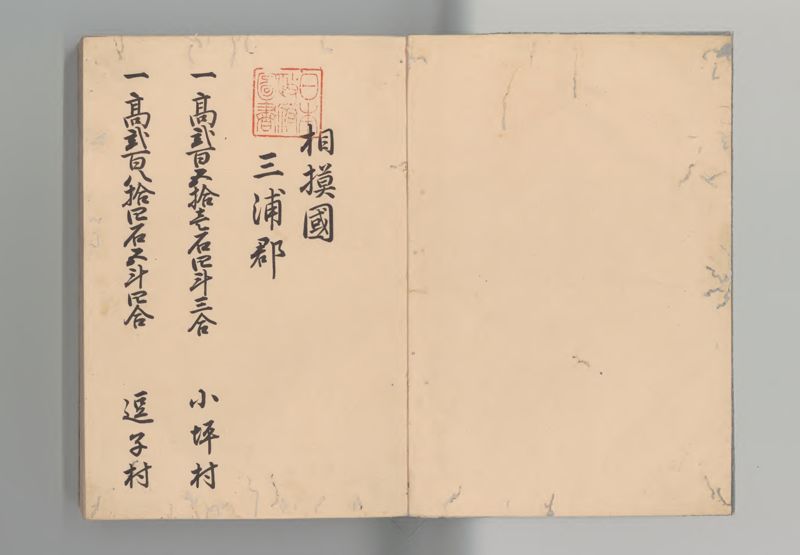 相摸國
三浦郡
一高弐百五拾壱石四斗三合 小坪村
一高弐百八拾四石五斗四合 逗子村
日本
政府
圖書